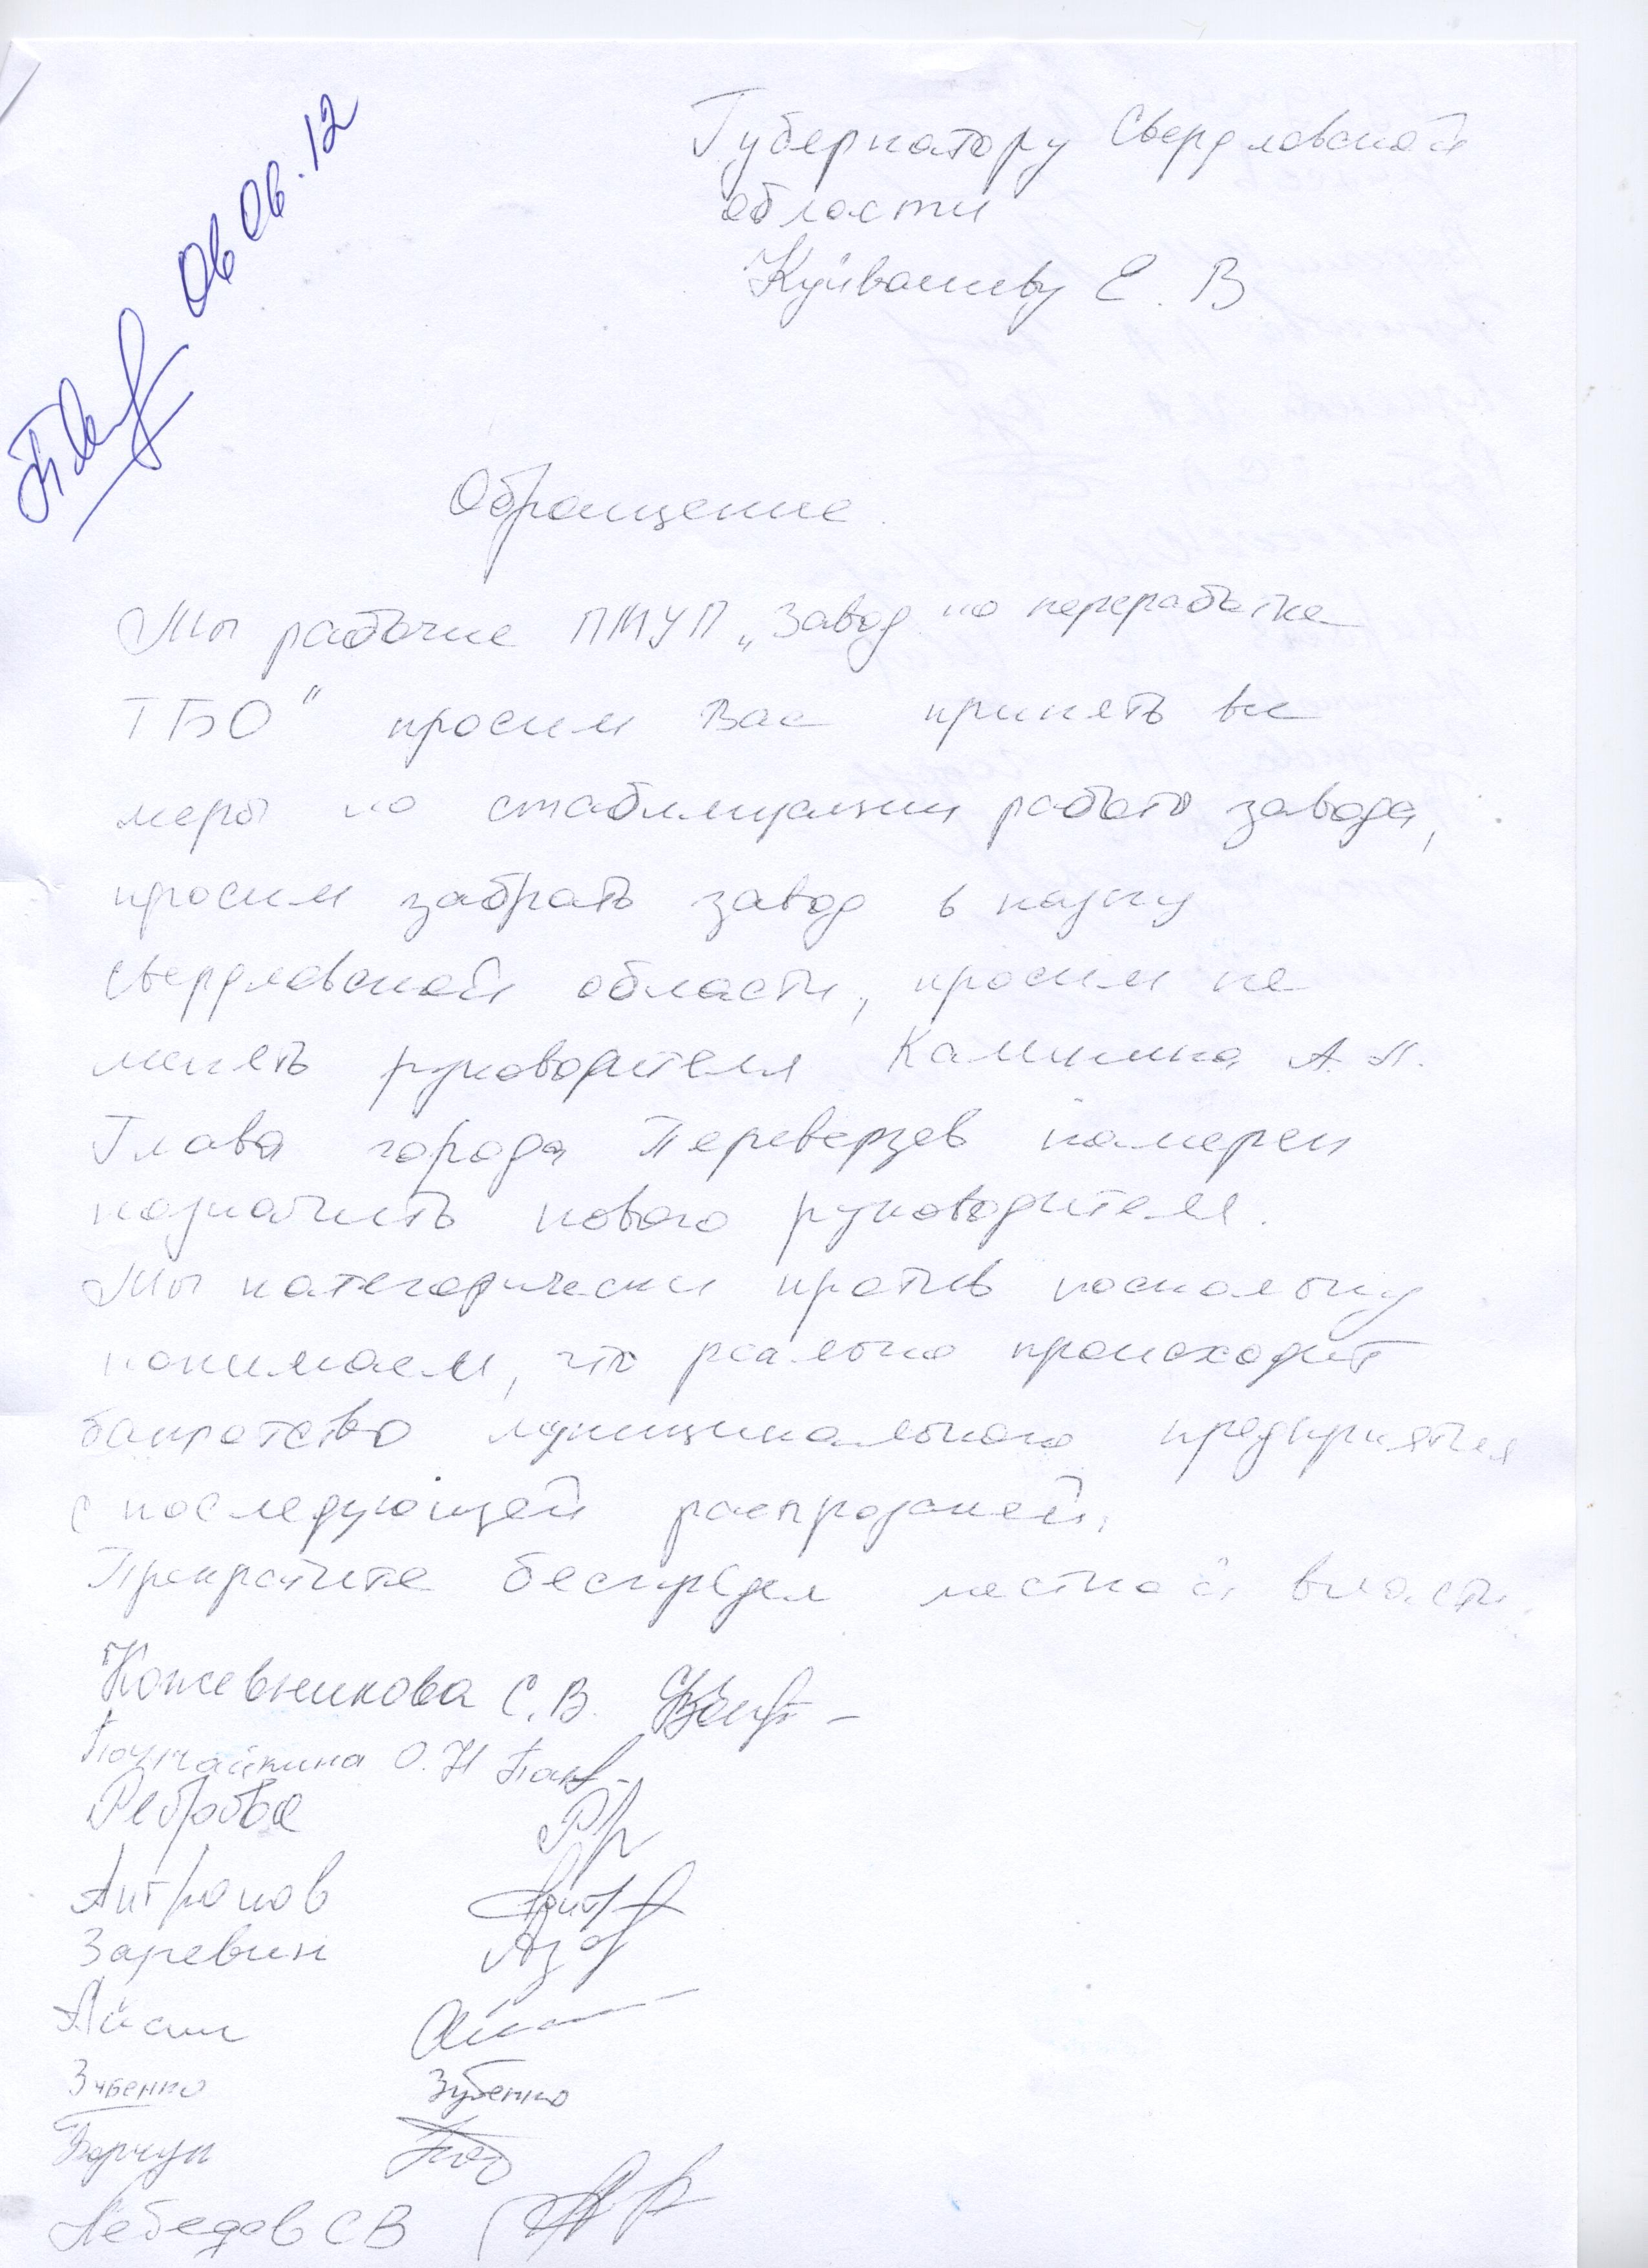 06 06.12
Губернатору Свердловской
области
Куйвашеву Е. В
Обращение.
Мы рабочие ПМУП „Завод по переработке
ТБО" просим Вас принять все
меры по стабилизации работы завода,
просим забрать завод в казну
Свердловской области, просим не
менять руководителя Калинина А.П.
Глава города Переверзев намерен
назначить нового руководителя.
Мы категорически против поскольку
понимаем, что реально происходит
банкротство муниципального предприятия
с последующей распродажей.
Прекратите беспредел местной власти.
Кожевникова С.В.
О.Н
Реброва
Антропов
Заревин
Зубенко Зубенко
Лебедев СВ